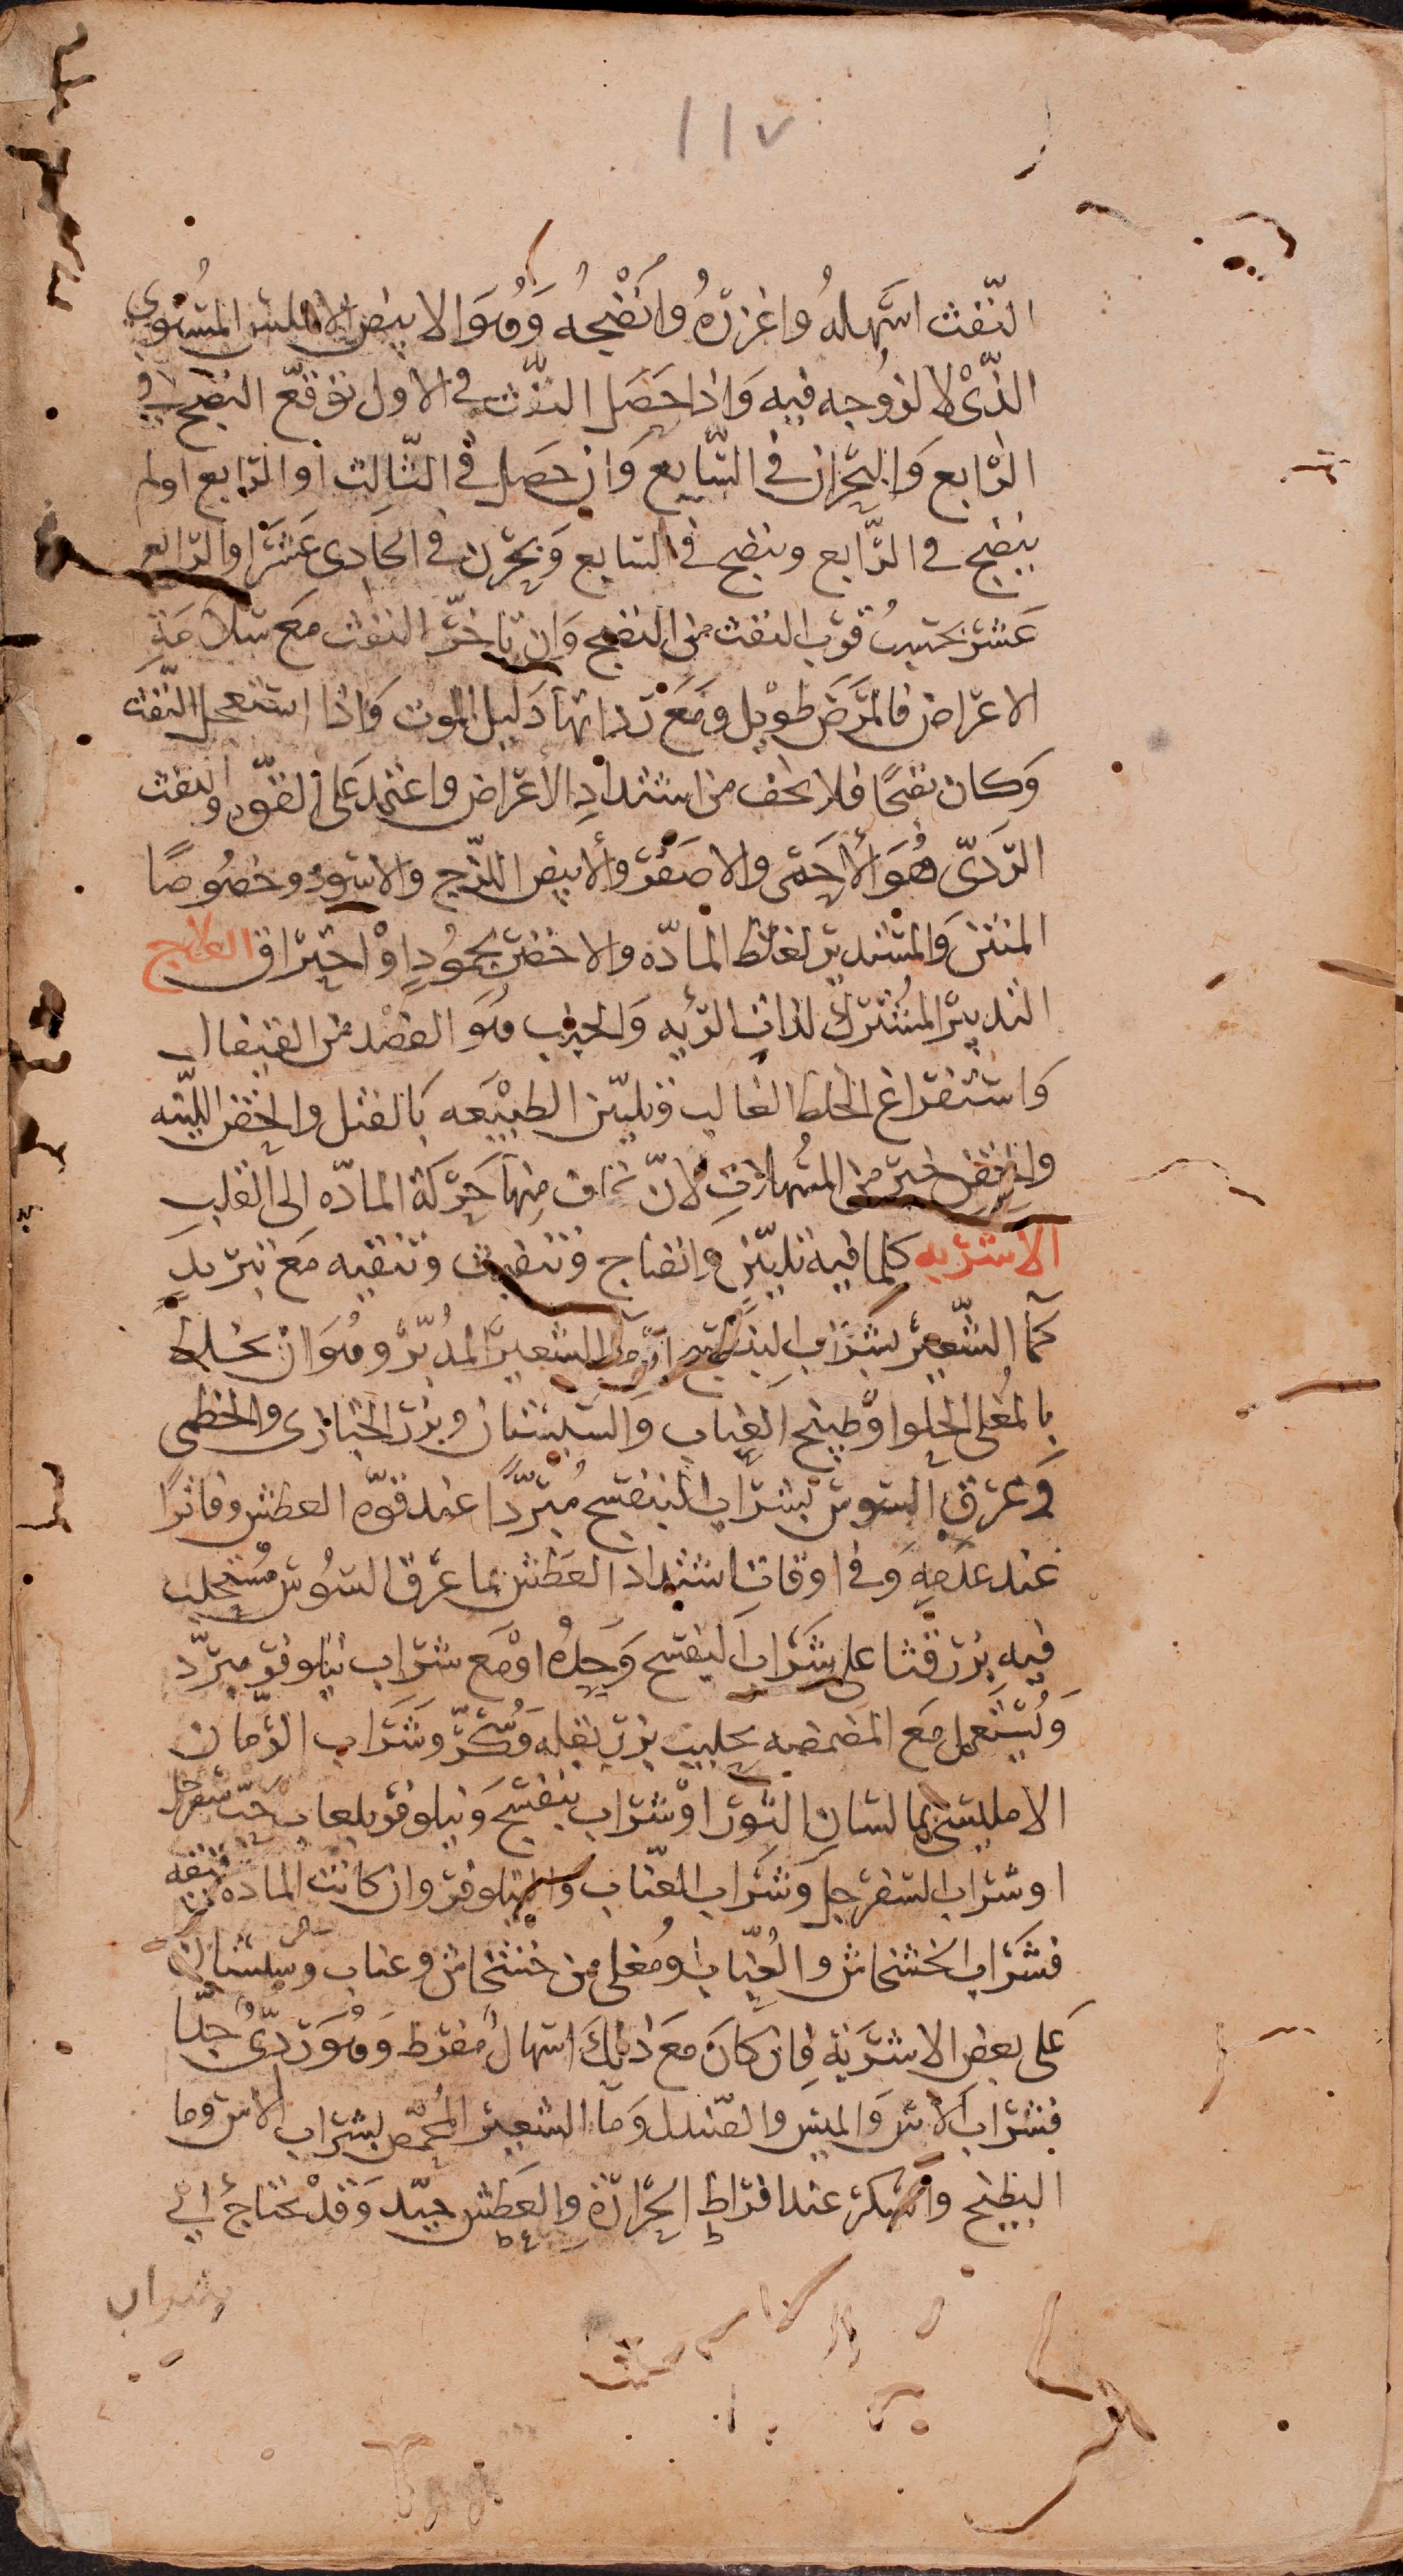 ١١٧
النّفث اسهله واغزره وانضجه وهو الابيض الاملس المستوي
الذي لا لزوجه فيه واذا حصل النفث في الاول توقع النضج في
الرابع والبحران في السابع وان حصل في الثالث او الرابع ولم
ينضج في الرابع وينضج في السابع وبحرن في الحادى عشر او الرابع
عشر بحسب قرب النفث من النضج وان تاخر النفث مع سلامة
الاعراض فالمرض طويل ومع رداتها دليل الموت واذا استعجل النفث
وكان نضجًا فلا تخف من اشتداد الاعراض واعتمد على القوه والنفث
الردىّ هو الاحمر والاصفر والابيض اللزج والاسود وخصوصًا
المنتن والمستدير لغلظ المادّه والاخضر لجمودٍ او احتراق العلاج
التدبير المشترك لذات الريه والجنب هو الفصد من القيفال
واستفراغ الخلط الغالب وتليين الطبيعه بالفتل والحقن اللينه
والحقن خير من المسهلات لانّ نخاف منها حركة المادّه الى القلب
الاشربه كلما فيه تليين وانضاج وتنفيث وتنقيه مع تبريد
كمآ الشعير بشراب البنفسج او مآ الشعير المدبّر وهو ان يخلط
بالمغلى الحلو او طبيخ العناب والسبستان وبزر الخبازى والخطمى
وعرق السوس بشراب البنفسج مبرّدًا عند قوّه العطش وفاترًا
عند عدمه وفى اوقات اشتداد العطش بما عرق السوس مستحلب
فيه بزر قثا على شراب البنفسج وحده او مع شراب نيلوفر مبرّد
ويستعمل مع المضمضه بحليب بزر بقله وسكّر وشراب الرمان
الامليسى بما لسان الثور او شراب بنفسج ونيلوفر بلعاب حبّ سفرجل
او شراب السفرجل وشراب العنّاب والنيلوفر وان كانت المادة رقيقه
فشراب الخشخاش والعنّاب او مغلى من خشخاش وعناب وسبستان
على بعض الاشربة فان كان مع ذلك اسهالٌ مفرط وهو ردىّ جدّا
فشراب الاس والميس والصندل ومآ الشعير المحمّص بشراب الاس وما
البطيخ والسكر عند افراط الحرارة والعطش جيّد وقد يحتاج الى
شراب